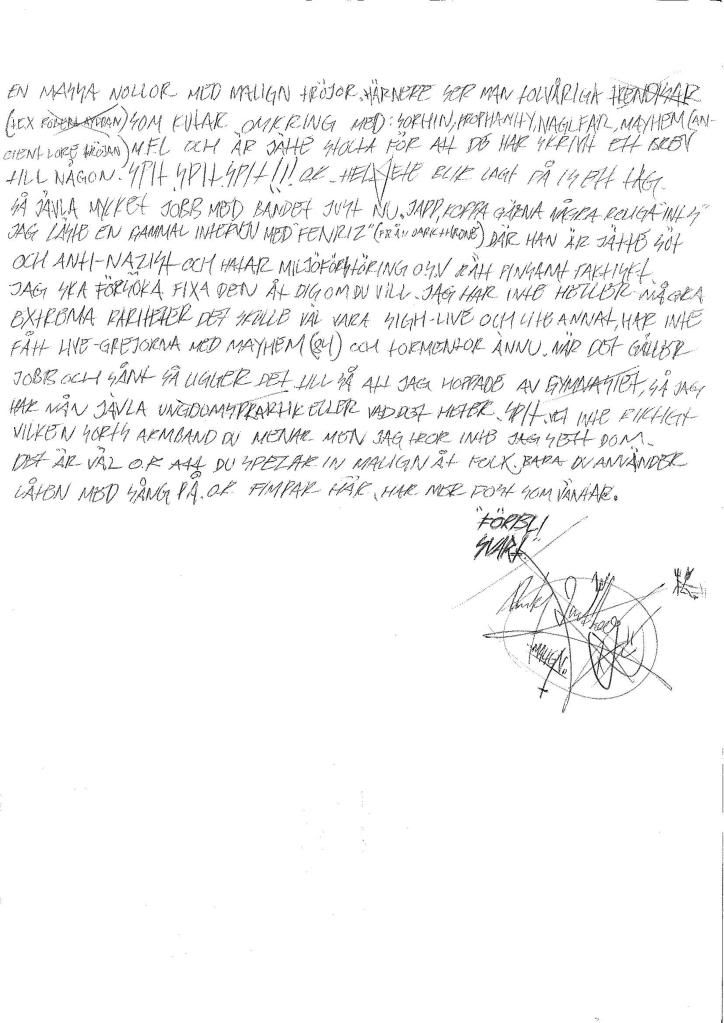 EN MASSA NOLLOR MED MALIGN TRÖJOR. HÄRNERE SER MAN TOLVÅRIGA
(TEX) SOM KUTAR OMKRING MED: SORHIN, PROPHANITY, NAGLFAR, MAYHEM (AN-
CIENT LORE TRÖJAN) MFL OCH ÄR JÄTTE STOLTA FÖR ATT DE HAR SKRIVIT ETT BREV
TILL NÅGON. SPIT SPIT SPIT!!! OK. HELVETE BLIR LAGT PÅ IS ETT TAG.
SÅ JÄVLA MYCKET JOBB MED BANDET JUST NU. JAPP, KOPPA GÄRNA NÅGRA "INTS"
JAG LÄSTE EN GAMMAL INTERVJU MED "FENRIZ" (FRÅN DARKTHRONE) DÄR HAN ÄR JÄTTE SÖT
OCH ANTI-NAZIST OCH HATAR MILJÖFÖRSTÖRING OSV. RÄTT PINSAMT FAKTISKT.
JAG SKA FÖRSÖKA FIXA DEN ÅT DIG OM DU VILL. JAG HAR INTE HELLER NÅGRA
EXTREMA RARITETER DET SKULLE VÄL VARA SIGH-LIVE OCH LITE ANNAT, HAR INTE
FÅTT LIVE-GREJORNA MED MAYHEM OCH TORMENTOR ÄNNU. NÄR DET GÄLLER
JOBB OCH SÅNT SÅ LIGGER DET TILL SÅ ATT JAG HOPPADE AV GYMNASIET, SÅ JAG
HAR NÅN JÄVLA UNGDOMSPRAKTIK ELLER VAD DET HETER. SPIT. VET INTE RIKTIGT
VILKEN SORTS ARMBAND DU MENAR MEN JAG TROR INTE JAG SETT DOM.
DET ÄR VÄL O.K ATT DU SPELAR IN MALIGN ÅT FOLK. BARA DU ANVÄNDER
LÅTEN MED SÅNG PÅ. OK FIMPAR HÄR, HAR MER POST SOM VÄNTAR.
"FÖRBLI
SVART."
MALIGN.